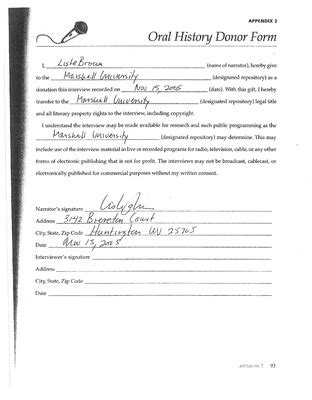 APPENDIX 2
Oral History Donor Form
I, Lisle Brown (name of narrator), hereby give
to the Marshall University (designated repository) as a
donation this interview recorded on Nov 15, 2005 (date). With this gift, I hereby
transfer to the Marshall University (designated repository) legal title
and all literary property rights to the interview, including copyright.
I understand the interview may be made available for research and such public programming as the
Marshall University (designated repository) may determine. This may
include use of the interview material in live or recorded programs for radio, television, cable, or any other
forms of electronic publishing that is not for profit. The interviews may not be broadcast, cablecast, or
electronically published for commercial purposes without my written consent.
Narrator's signature
Address 3142 Court
City, State, Zip Code Huntington WV 25705
Date Nov 15, 2005
Interviewer's signature
Address
City, State, Zip Code
Date
APPENDIX 2 93